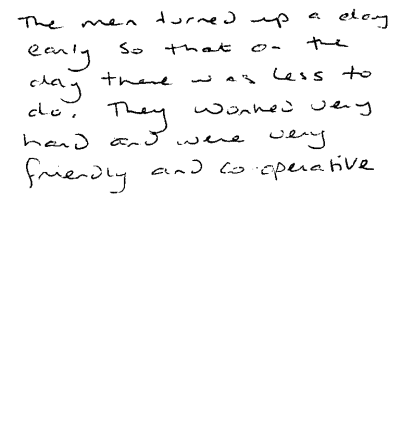 The men turned up a day
early so that on the
day there was less to
do. They worked very
hard and were very
friendly and co-operative